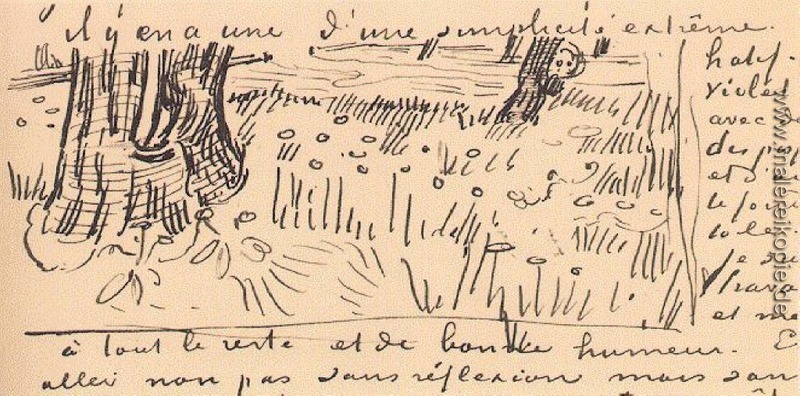 il y en a une d'une simplicité extrême.
violet
avec
des
et
le
soleil
je
trava
et me
à tout le reste et de bonne humeur. E
aller non pas sans réflexion mais san
www.malereikopie.de